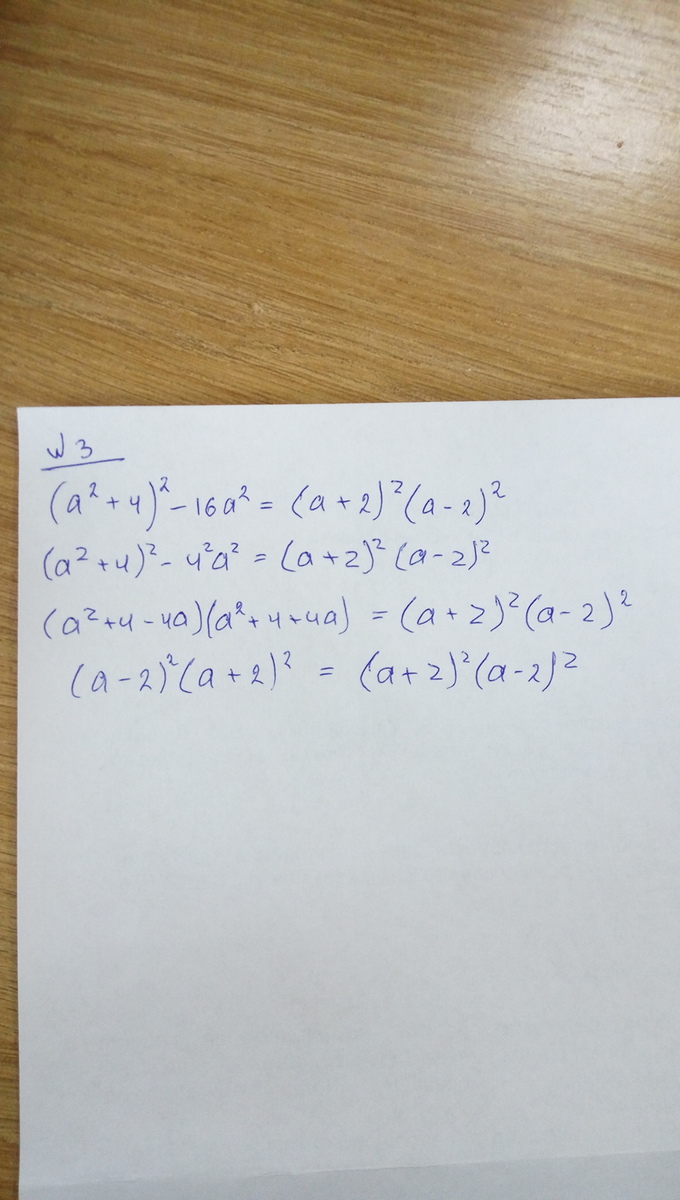 № 3
(a² + 4)² - 16a² = (a + 2)²(a - 2)²
(a² + 4)² - 4²a² = (a + 2)² (a - 2)²
(a² + 4 - 4a)(a² + 4 + 4a) = (a + 2)²(a - 2)²
(a - 2)²(a + 2)² = (a + 2)²(a - 2)²